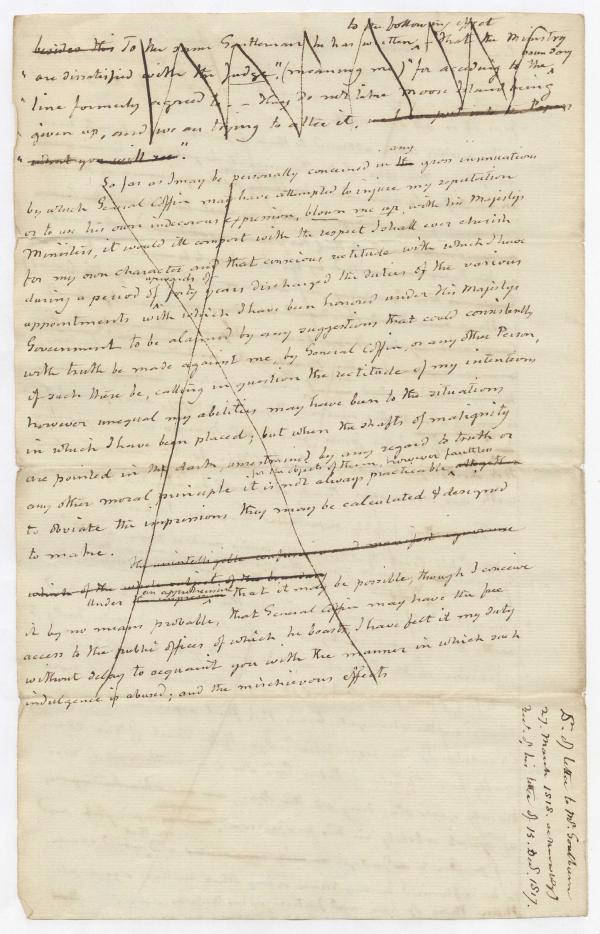 to the following effect
besides this To the same Gentleman he has written, - "That the Ministry
" are dissatisfied with the Judge," (meaning me) "for acceding to the boundary
" line formerly agreed to - - They do not like Moose Island being
" given up, and we are trying to alter it,
" about you will see."
So far as I may be personally concerned in any gross insinuations
by which General Coffin may have attempted to injure my reputation
or to use his own indecorous expression, blown me up, with his Majestys
Ministers, it would ill comport with the respect I shall ever cherish
for my own character, and that conscious rectitude with which I have
during a period of upwards of forty years discharged the duties of the various
appointments with which I have been honored under His Majestys
Government to be alarmed by any suggestions that could consistently
with truth be made against me, by General Coffin, or any other Person,
if such there be, calling in question the rectitude of my intentions
however unequal my abilities may have been to the situations
in which I have been placed; but when the shafts of malignity
are pointed in the dark, unrestrained by any regard to truth or
any other moral principle it is not always practicable for the objects of them, however faultless altogether
to obviate the impressions they may be calculated & designed
to make.
The unintelligible confusion and manifest ignorance
which of the whole subject of the boundary
Under an apprehension that it may be possible, though I conceive
it by no means probable, that General Coffin may have the free
access to the public offices of which he boasts, I have felt it my duty
without delay to acquaint you with the manner in which such
indulgence is abused; and the mischievous effects
Dt. of letter to Mr. Goulburn
27. March 1818. acknowlegg
rect. of his letter of 15. Decr. 1817.